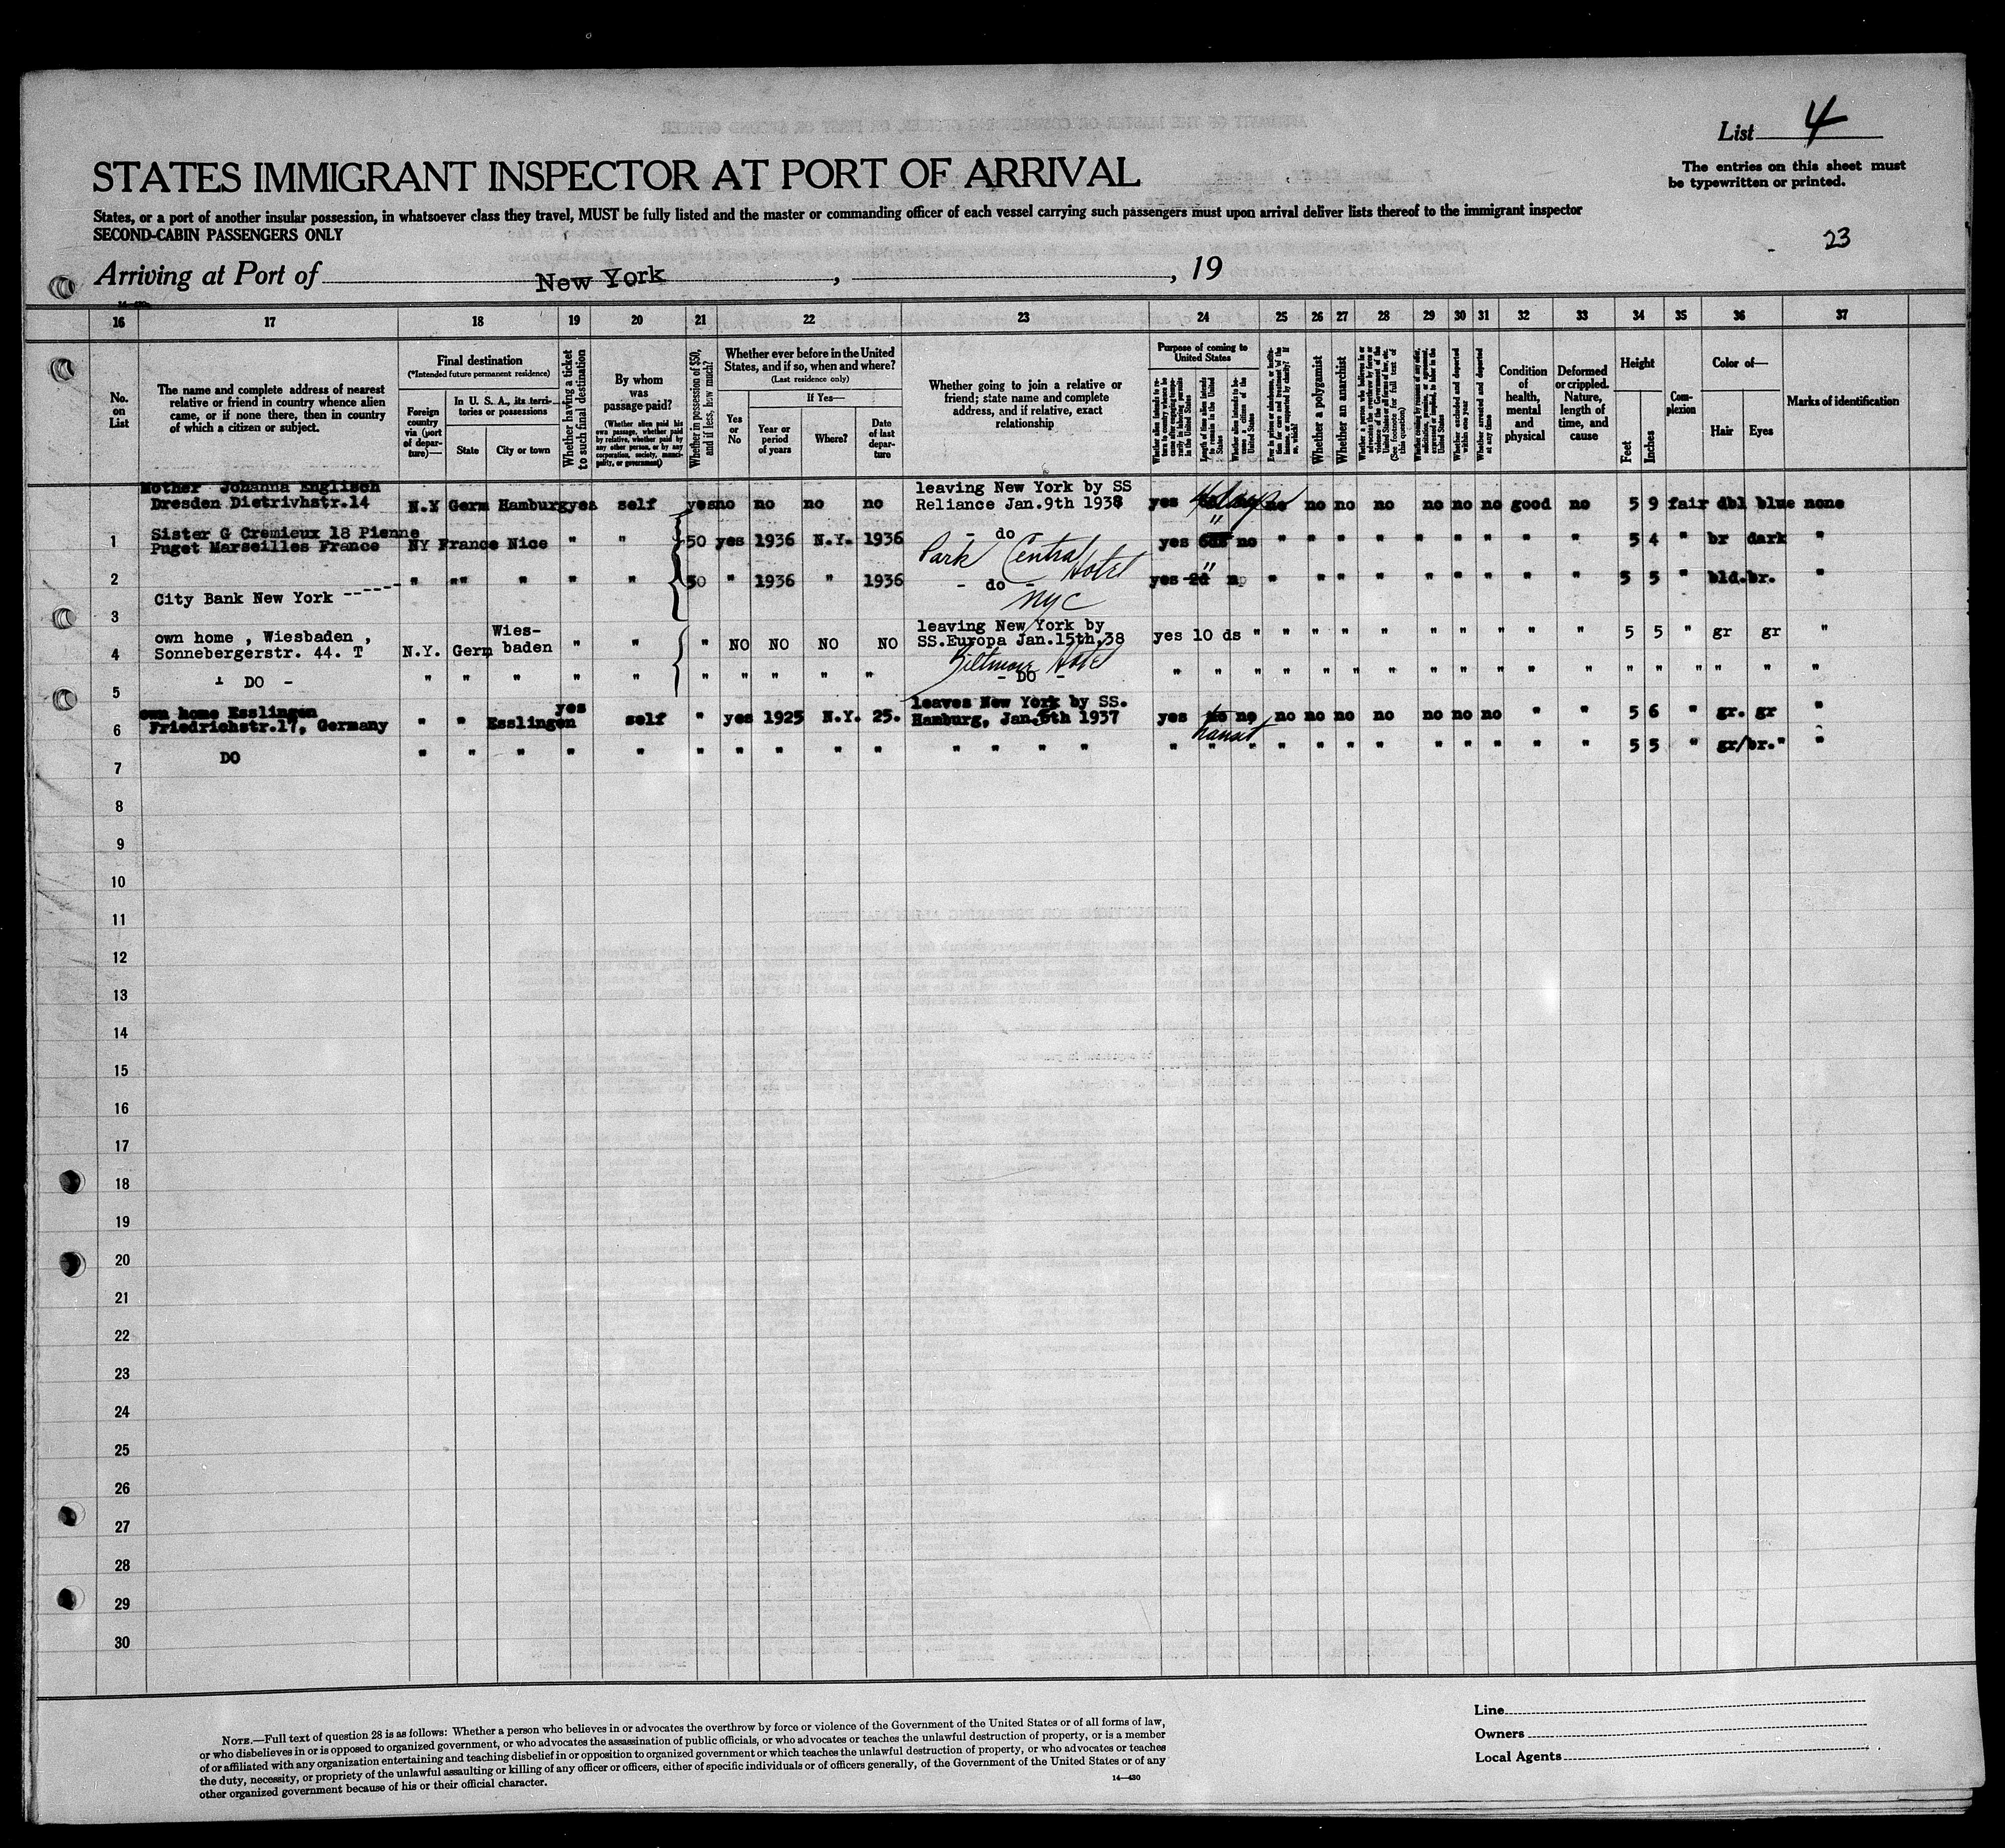 List 4
STATES IMMIGRANT INSPECTOR AT PORT OF ARRIVAL
The entries on this sheet must
be typewritten or printed.
States, or a port of another insular possession, in whatsoever class they travel, MUST be fully listed and the master or commanding officer of each vessel carrying such passengers must upon arrival deliver lists thereof to the immigrant inspector
SECOND-CABIN PASSENGERS ONLY
23
Arriving at Port of New York, , 19
16 17 18 19 20 21 22 23 24 25 26 27 28 29 30 31 32 33 34 35 36 37
No.
on
List
The name and complete address of nearest
relative or friend in country whence alien
came, or if none there, then in country
of which a citizen or subject.
Final destination
(*Intended future permanent residence)
Foreign
country
via (port
of depar-
ture)—
In U. S. A., its terri-
tories or possessions
State
City or town
Whether having a ticket
to such final destination
By whom
was
passage paid?
(Whether alien paid his
own passage, whether paid
by relative, whether paid by
any other person, or by any
corporation, society, munici-
pality, or government)
Whether in possession of $50,
and if less, how much?
Whether ever before in the United
States, and if so, when and where?
(Last residence only)
Yes
or
No
If Yes—
Year or
period
of years
Where?
Date
of last
depar-
ture
Whether going to join a relative or
friend; state name and complete
address, and if relative, exact
relationship
Purpose of coming to
United States
Length of time alien intends
to remain in the United
States
Whether a polygamist
Whether an anarchist
(See footnote for full text of
this question)
Whether excluded and deported
within one year
Whether arrested and deported
at any time
Condition
of
health,
mental
and
physical
Deformed
or crippled.
Nature,
length of
time, and
cause
Height
Feet
Inches
Com-
plexion
Color of—
Hair
Eyes
Marks of identification
Mother Johanna Englisch
Dresden Dietrivhstr.14 N.Y Germ Hamburg yes self yes no no no no
leaving New York by SS
Reliance Jan.9th 1938 yes no no no no no no no good no 5 9 fair dbl blue none
1 Sister G Cremieux 18 Pienne
Puget Marseilles France NY France Nice " " 50 yes 1936 N.Y. 1936 - do - yes no " " " " " " " " " 5 4 " br dark "
Park Central Hotel
2 " "" " " " 50 " 1936 " 1936 - do - yes 2d no " " " " " " " " " 5 5 " bld. br. "
City Bank New York ------
NYC
3
own home , Wiesbaden ,
Sonnebergerstr. 44. T N.Y. Germ Wies-
baden " " " NO NO NO NO
leaving New York by
SS.Europa Jan.15th,38 yes 10 ds " " " " " " " " " " 5 5 " gr gr "
4
Biltmore Hotel
- DO - " " " " " " " " " " - DO - " " " " " " " " " " " " " " " " " "
5
own home Esslingen
Friedrichstr.17, Germany " " Esslingen yes self " yes 1925 N.Y. 25.
leaves New York by SS.
Hamburg, Jan.5th 1937 yes no no no no no no no no no " " 5 6 " gr. gr "
6
transit
DO " " " " " " " " " " " " " " " " " " " " " " " " " " 5 5 " gr/br. " "
7
8
9
10
11
12
13
14
15
16
17
18
19
20
21
22
23
24
25
26
27
28
29
30
NOTE.—Full text of question 28 is as follows: Whether a person who believes in or advocates the overthrow by force or violence of the Government of the United States or of all forms of law,
or who disbelieves in or is opposed to organized government, or who advocates the assassination of public officials, or who advocates or teaches the unlawful destruction of property, or is a member
of or affiliated with any organization entertaining and teaching disbelief in or opposition to organized government or which teaches the unlawful destruction of property, or who advocates or teaches
the duty, necessity, or propriety of the unlawful assaulting or killing of any officer or officers, either of specific individuals or of officers generally, of the Government of the United States or of any
other organized government because of his or their official character.
14—430
Line
Owners
Local Agents